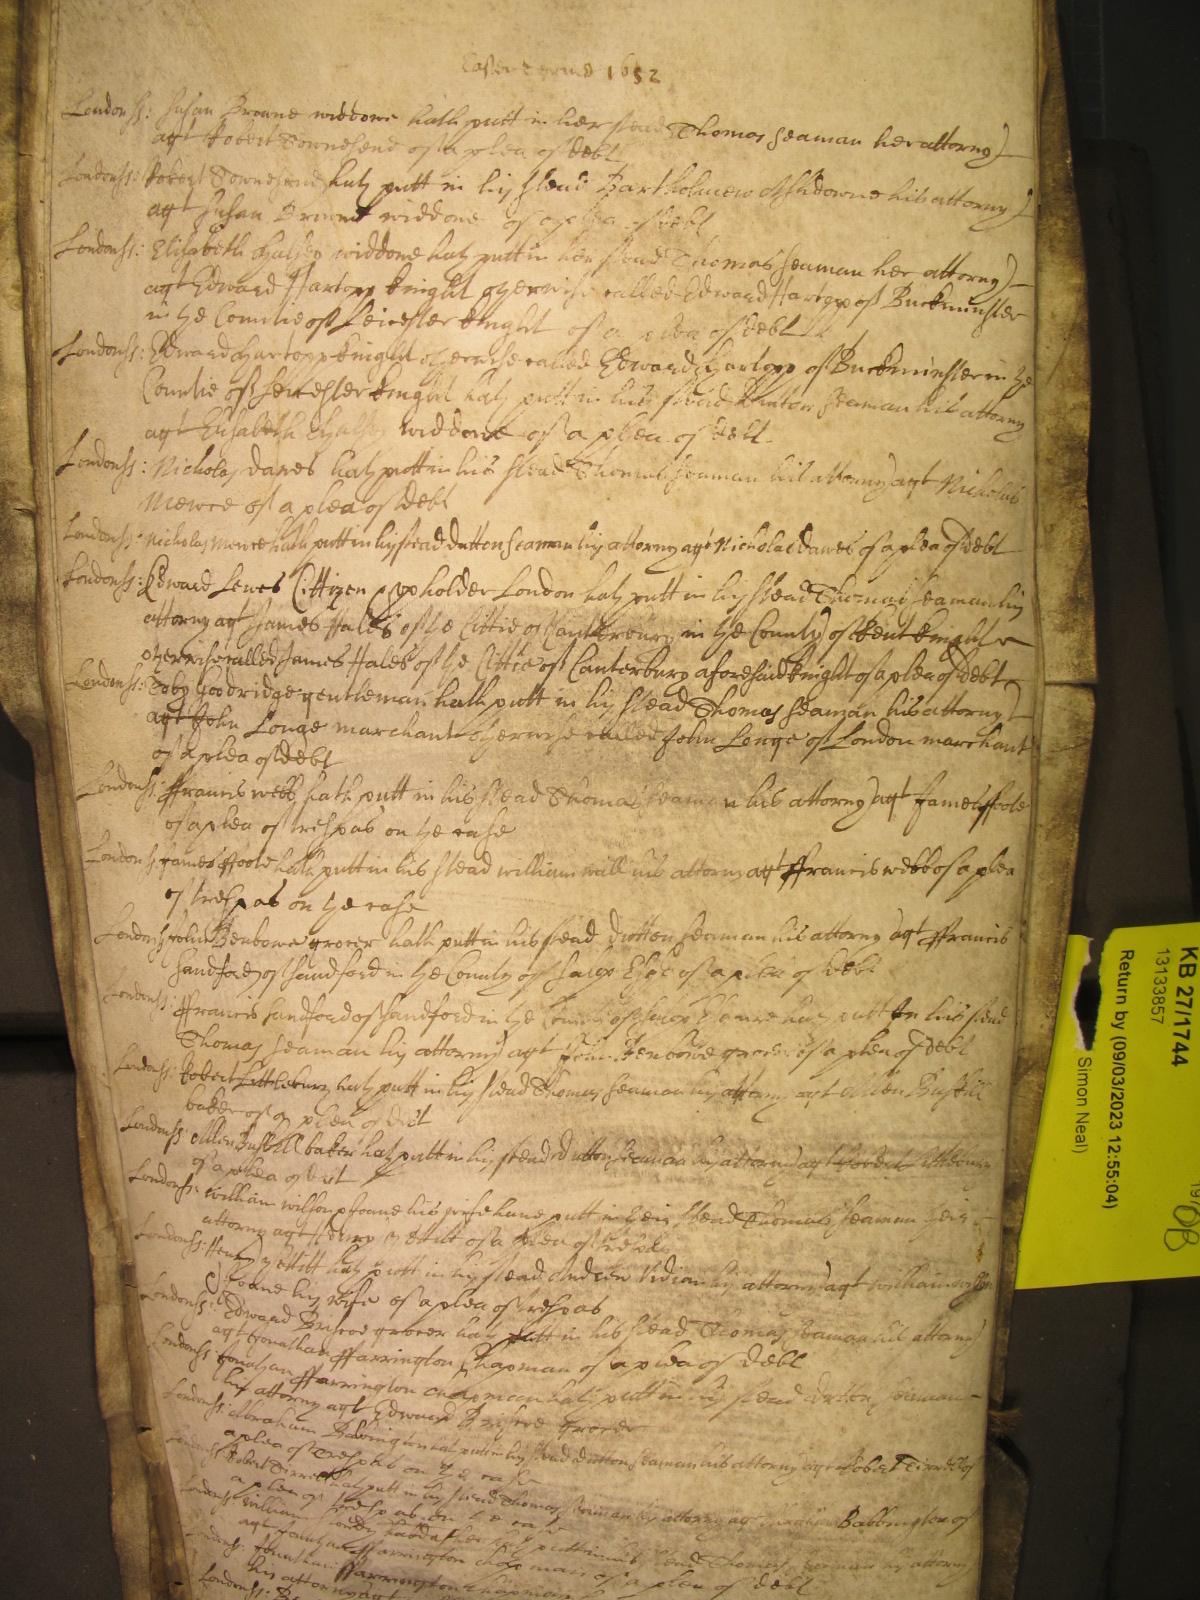 Easter Terme 1652
London ss: Susan Browne widdowe hath putt in her stead Thomas Seaman her attorny
agt Robert Townesend of a plea of debt
London ss: Robert Townesend hath putt in his stead Bartholmew Ashdowne his attorny
agt Susan Browne widdowe of a plea of debt
London ss: Elisabeth Halsey widdowe hath putt in her stead Thomas Seaman her attorny
agt Edward Hartopp knight otherwise called Edward Hartopp of Buckminster
in the Countie of Leicester knight of a plea of debt
London ss: Edward Hartopp knight otherwise called Edward Hartopp of Buckminster in the
Countie of Leicester knight hath putt in his stead Dutton Seaman his attorny
agt Elisabeth Halsey widdowe of a plea of debt
London ss: Nicholas Dawes hath putt in his stead Thomas Seaman his attorny agt Nicholas
Mewce of a plea of debt
London ss: Nicholas Mewce hath putt in his stead Dutton Seaman his attorny agt Nicholas Dawes of a plea of debt
London ss: Edward Lewes Cittizen & upholder London hath putt in his stead Thomas Seaman his
attorny agt James Hales of the Cittie of Canterbury in the County of Kent knight
otherwise called James Hales of the Cittie of Canterbury aforesaid knight of a plea of debt
London ss: Toby Goodridge gentleman hath putt in his stead Thomas Seaman his attorny
agt John Longe marchant otherwise called John Longe of London marchant
of a plea of debt
London ss: Ffrancis Webb hath putt in his stead Thomas Seaman his attorny agt James Ffoole
of a plea of trespas on the case
London ss: James Ffoole hath putt in his stead William Will his attorny agt Ffrancis Webb of a plea
of trespas on the case
London ss: John Benbowe grocer hath putt in his stead Dutton Seaman his attorny agt Ffrancis
Sandford of Sandford in the County of Salop Esqr of a plea of debt
London ss: Ffrancis Sandford of Sandford in the County of Salop Esquire hath putt in his stead
Thomas Seaman his attorny agt John Benbowe grocer of a plea of debt
London ss: Robert Littlebury hath putt in his stead Thomas Seaman his attorny agt Allen Bushell
baker of a plea of debt
London ss: Allen Bushell baker hath putt in his stead Dutton Seaman his attorny agt Robert Littlebury
of a plea of debt
London ss: William Wilson & Joane his wife have putt in their stead Thomas Seaman their
attorny agt Henry of a plea of trespas
London ss: Henry hath putt in his stead Andrew Vidian his attorny agt William Wilson
& Joane his wife of a plea of trespas
London ss: Edward Briscoe grocer hath putt in his stead Thomas Seaman his attorny
agt Jonathan Ffarrington Chapman of a plea of debt
London ss: Jonathan Ffarrington chapman hath putt in his stead Dutton Seaman
his attorny agt Edward Briscoe grocer
London ss: Abraham Babington hath putt in his stead Dutton Seaman his attorny agt Robert of
a plea of trespas on the case
London ss: Robert hath putt in his stead Thomas Seaman his attorny agt Abraham Babbington of
a plea of trespas on the case
London ss: William haberdasher hath putt in his stead Thomas Seaman his attorny
agt Jonathan Ffarrington chapman of a plea of debt
London ss: Jonathan Ffarrington chapman
his attorny agt
London ss:
KB 27/1744
13133857
Return by (09/03/2023 12:55:04)
Simon Neal)